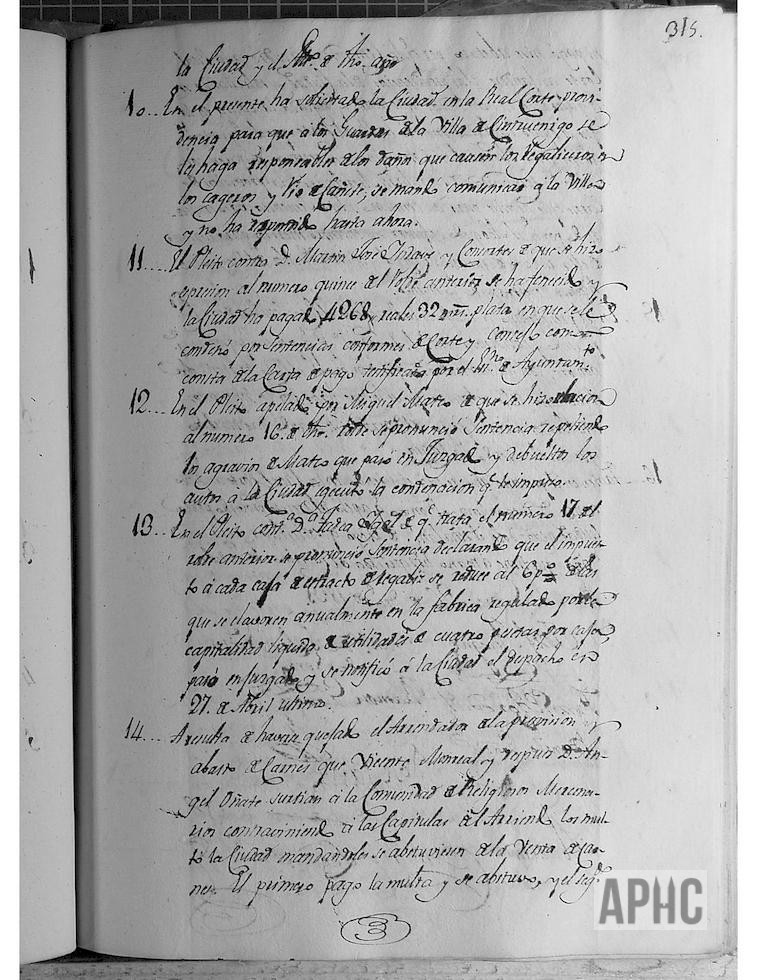 315.
la Ciudad y el de dho. año
10... En el presente ha solicitado la Ciudad en la Real Corte provi-
dencia para que a los Guardas de la Villa de Cintruenigo se
les haga responsables de los daños que causen los Regaliceros en
los cageros y Rio de Cañete, se mandó comunicar a la Villa
y no ha respondido hasta ahora.
11.... El Pleito contra D. Martin José y Consortes de que se hizo
expresion al numero quince del Rolde anterior se ha fenecido y
la Ciudad ha pagado 4268 reales 32 mrs. plata en que se le
condenó por Sentencias conformes de Corte y Consejo como
consta de la Carta de pago testificada por el Srio. de Ayuntamto.
12... En el Pleito apelado por Miguel Mateo de que se hizo relacion
al numero 16. de dho. rolde se pronunció Sentencia repeliendo
los agravios de Mateo que pasó en Juzgado y debueltos los
autos a la Ciudad egecutó la condenacion q. le impuso.
13... En el Pleito contra D.a de q.e trata el numero 17 del
rolde anterior se pronunció Sentencia declarando que el impues-
to á cada caja de estracto de regaliz se reduce al 6 p% de las
que se elavoren anualmente en la fabrica regulado por la
capitalidad liquida de utilidades de cuatro pesetas por caja,
pasó en juzgado y se notificó á la Ciudad el despacho en
27. de Abril ultimo.
14... A resulta de haverse quejado el Arrendador de la provision y
abasto de Carnes que Vicente Monreal y despues D. An-
gel Oñate surtian á la Comunidad de Religiosos Mercena-
rios contraviniendo á las Capitulas del Arriendo los mul-
tó la Ciudad mandandoles se abstuviesen de la Venta de car-
nes. El primero pagó la multa y se abstuvo, y el segdo.
3
APHC